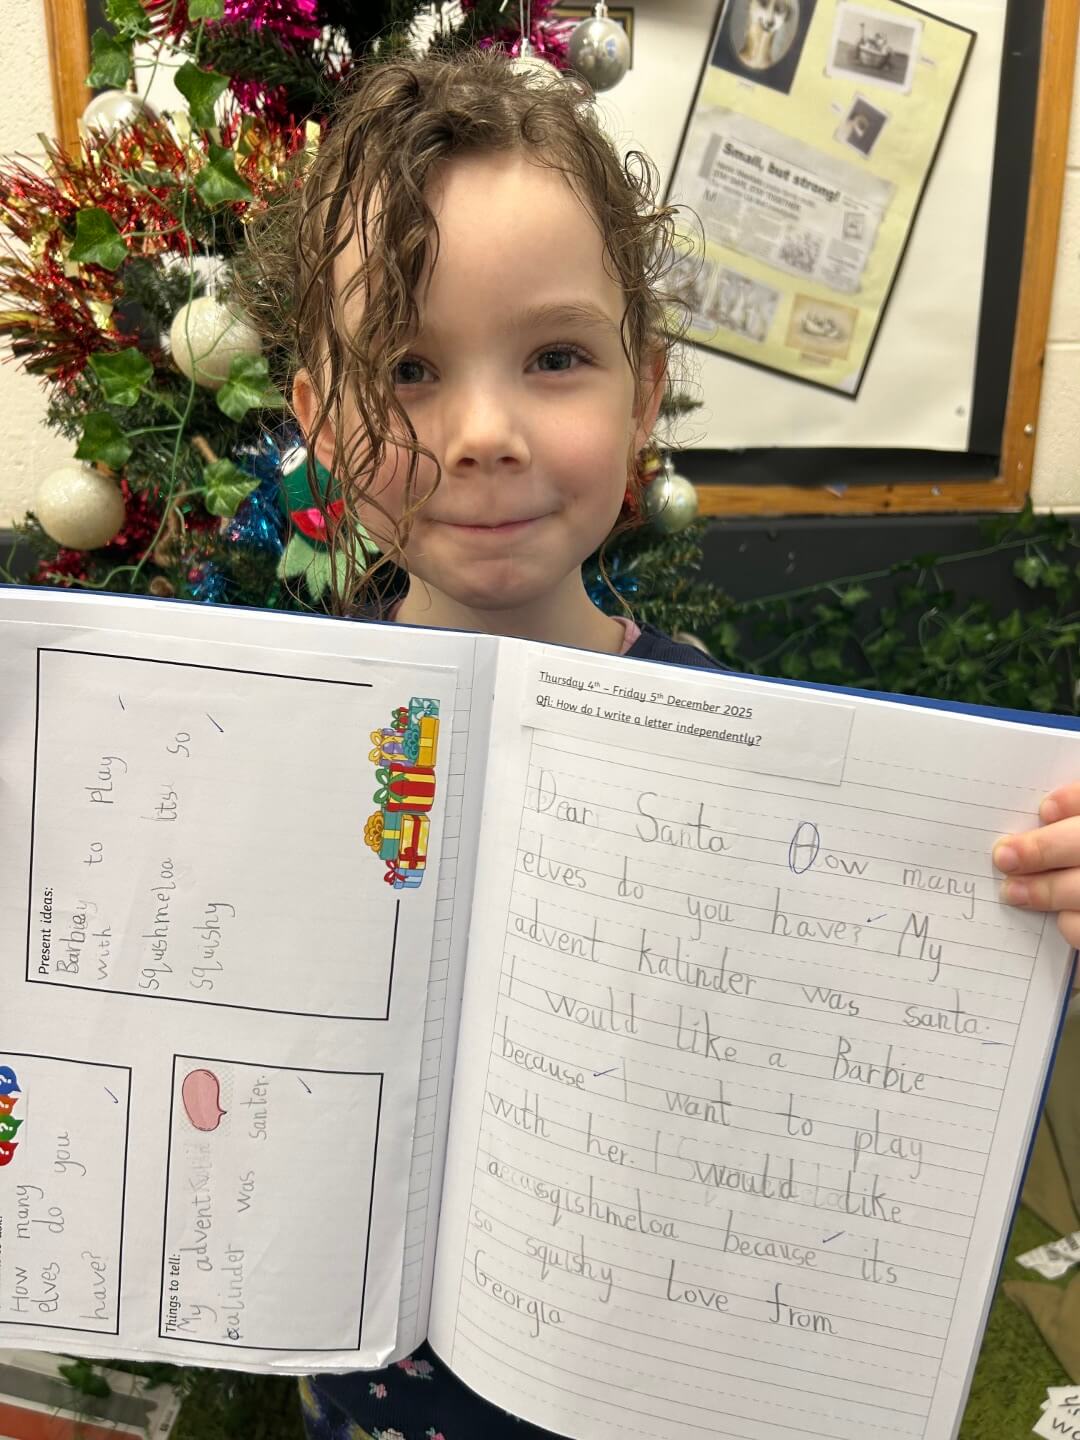 Small, but strong!
Present ideas:
Barbiey to play
with
squshmeloa itsu so
squishy
How many
elves do you
have?
Things to tell:
My advent
calinder was santer.
Thursday 4th – Friday 5th December 2025
Qfl: How do I write a letter independently?
Dear Santa How many
elves do you have? My
advent kalinder was santa.
I would like a Barbie
because I want to play
with her. I would like
a sqishmeloa because its
so squishy Love from
Georgia